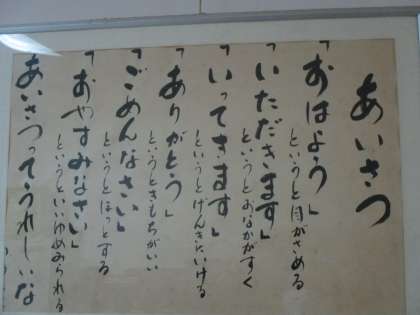 あいさつ
「おはよう」
というと目がさめる
「いただきます」
というとおなかがすく
「いってきます」
というとげんきにいける
「ありがとう」
というときもちがいい
「ごめんなさい」
というとほっとする
「おやすみなさい」
というといいゆめみられる
あいさつってうれしいな